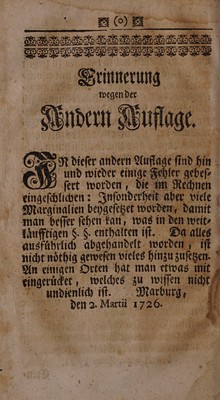 (o)
Erinnerung
wegen der
Andern Auflage.
IN dieser andern Auflage sind hin
und wieder einige Fehler gebes-
sert worden, die im Rechnen
eingeschlichen: Insonderheit aber viele
Marginalien beygesetzet worden, damit
man besser sehen kan, was in den weit-
läufftigen §. §. enthalten ist. Da alles
ausführlich abgehandelt worden, ist
nicht nöthig gewesen vieles hinzu zusetzen.
An einigen Orten hat man etwas mit
eingerücket, welches zu wissen nicht
undienlich ist. Marburg,
den 2. Martii 1726.